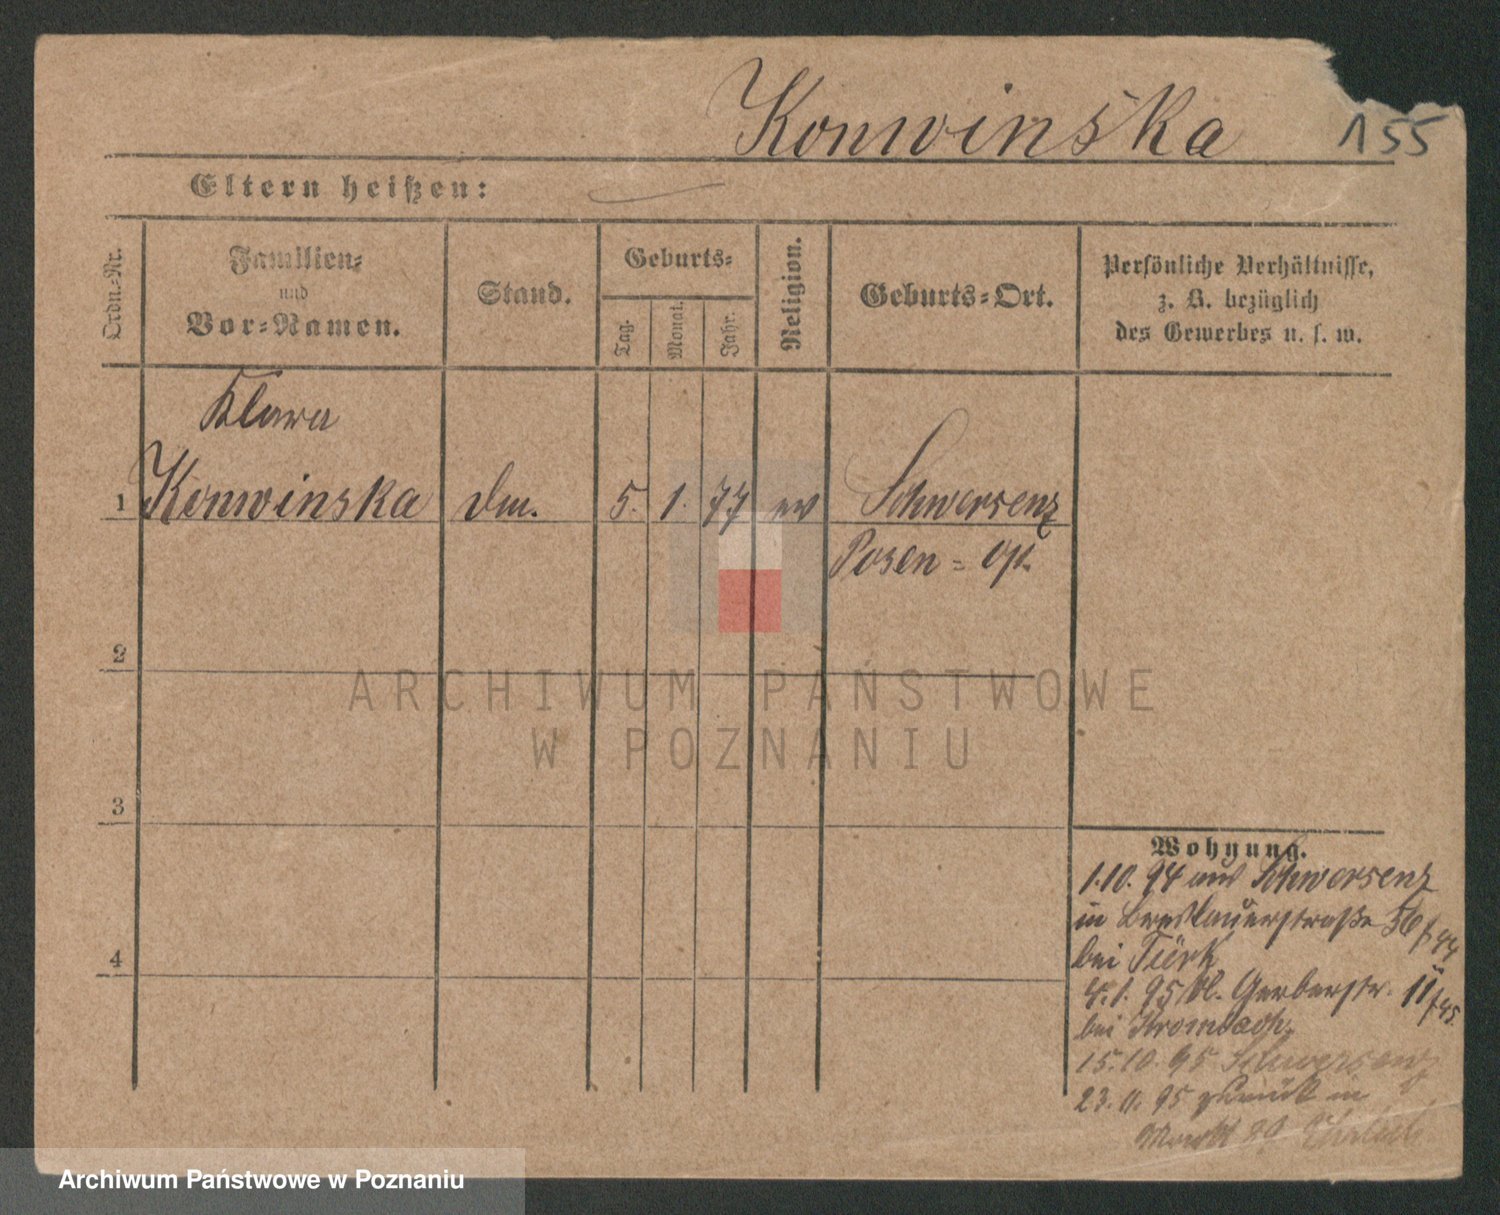 Konwinska
155
Eltern heißen:
Ordn.-Nr.
Familien-
und
Vor-Namen.
Stand.
Geburts-
Tag.
Monat.
Jahr.
Religion.
Geburts-Ort.
Persönliche Verhältnisse,
z. B. bezüglich
des Gewerbes u. s. w.
Klara
1 Konwinska 5. 1. 77 ev Schwersenz
Posen = Op.
2
3
4
Wohnung.
1.10.94 aus Schwersenz
in Breslauerstraße 36
bei Türk
4.1.95 Kl. Gerberstr. 11
bei Krombach
15.10.95 Schwersenz
23.11.95 zurück in
Markt
ARCHIWUM PAŃSTWOWE
W POZNANIU
Archiwum Państwowe w Poznaniu